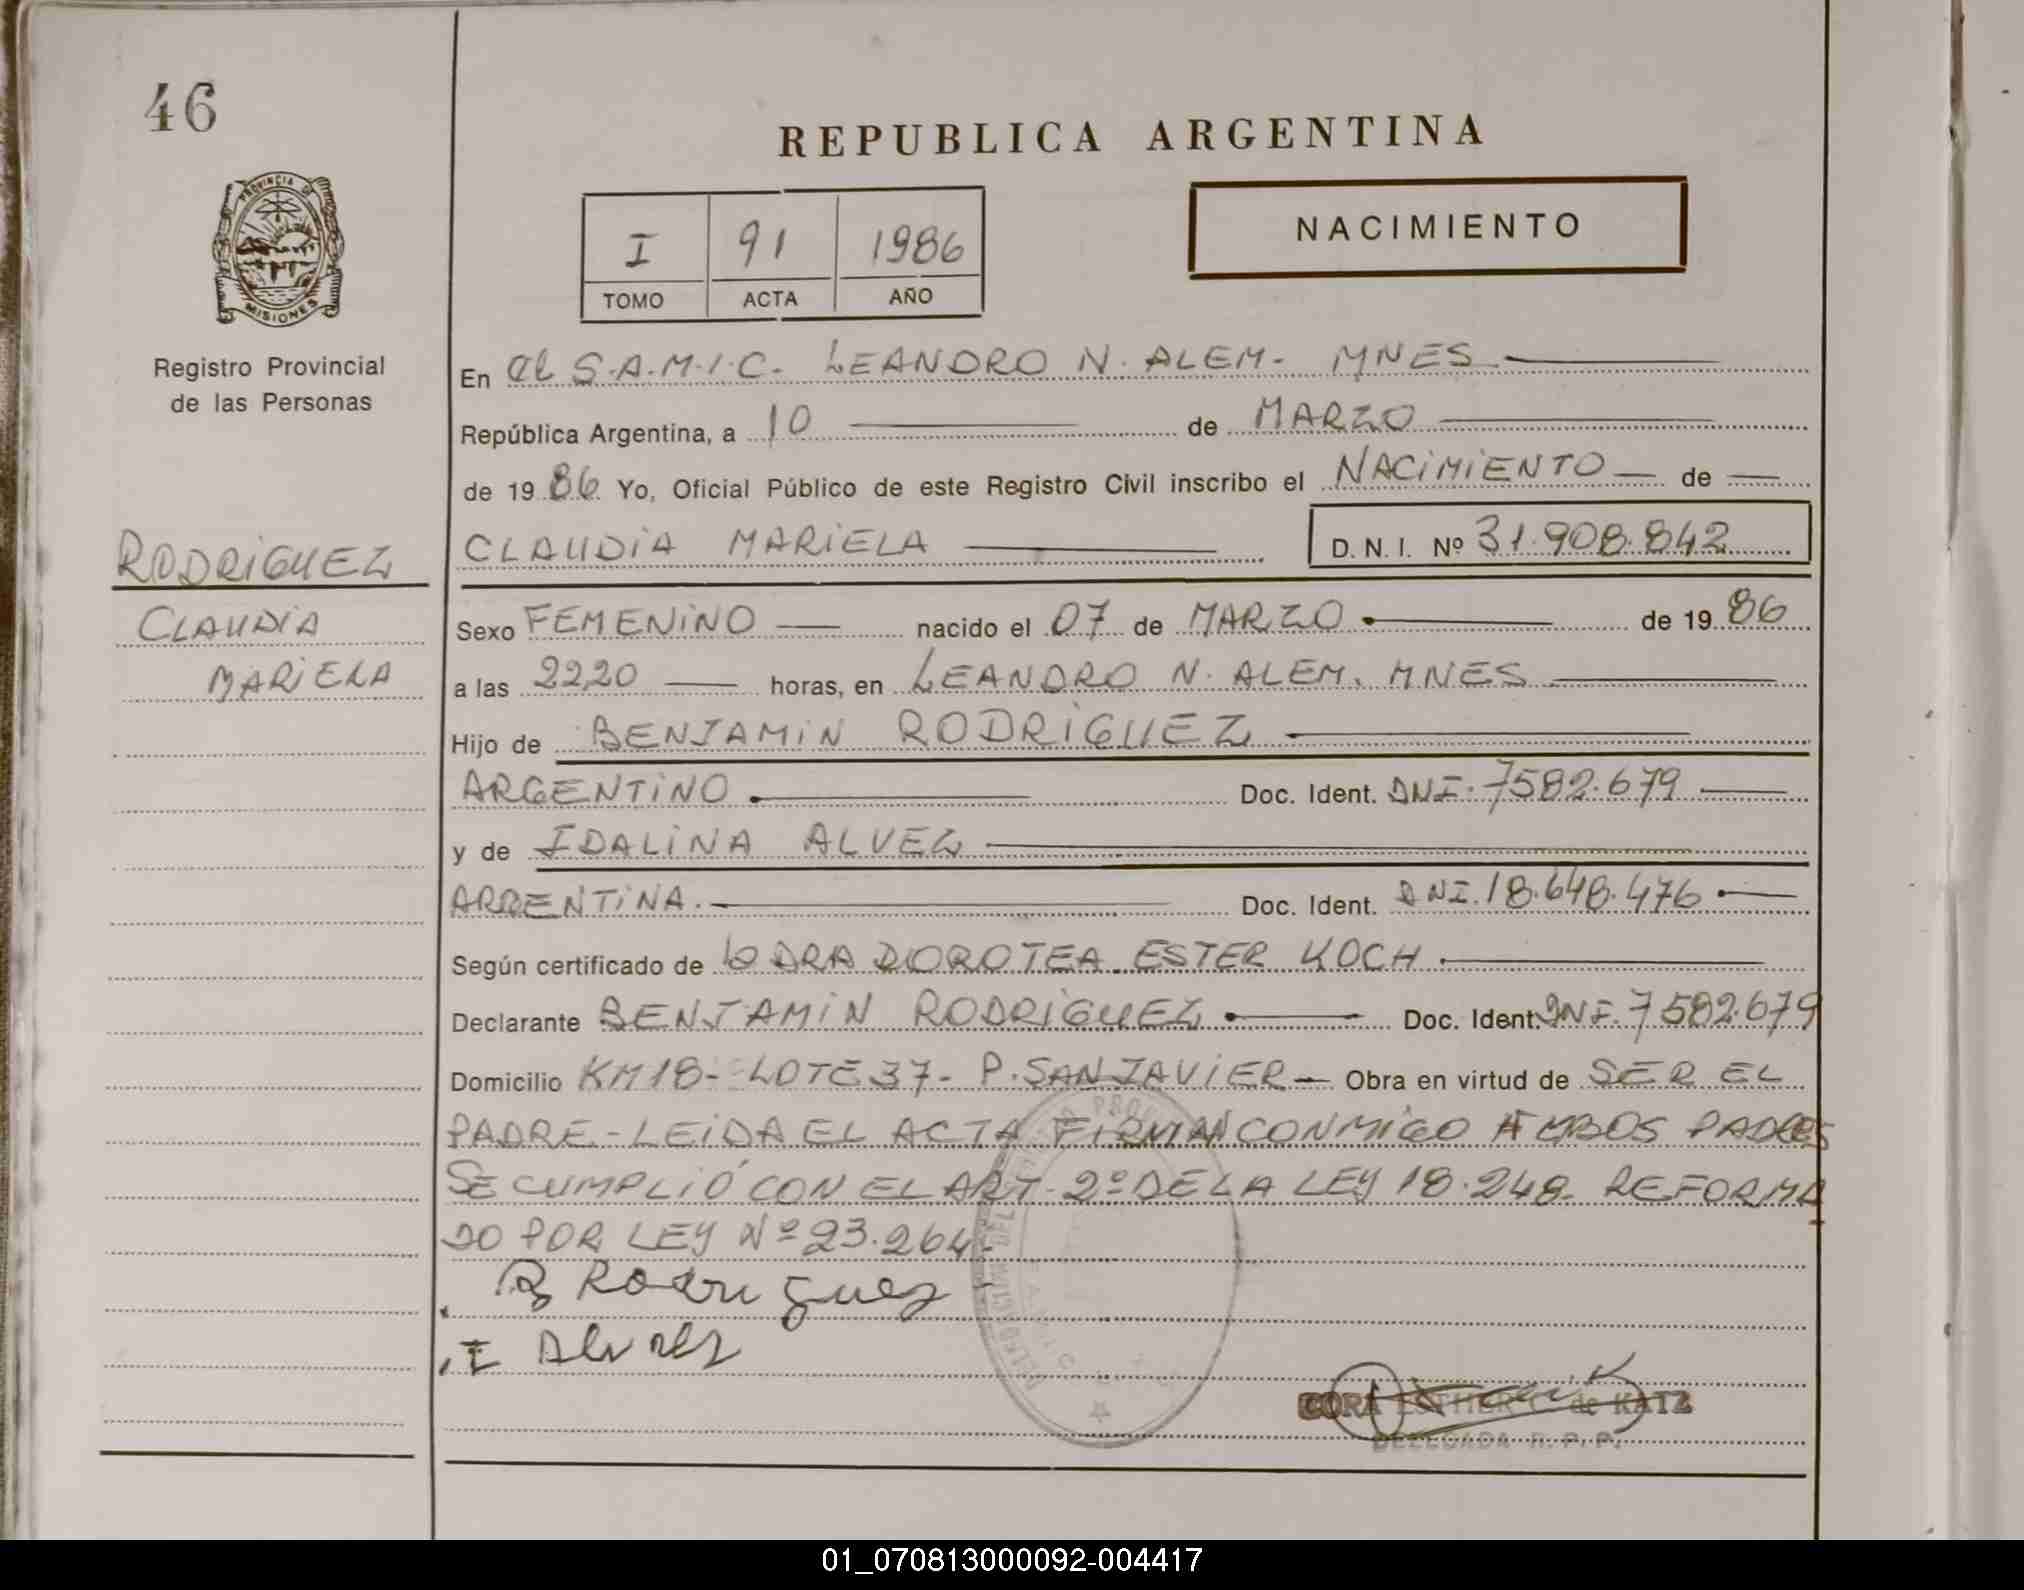 46
REPUBLICA ARGENTINA
PROVINCIA DE
MISIONES
I 91 1986
TOMO ACTA AÑO
NACIMIENTO
Registro Provincial
de las Personas
En el S.A.M.I.C. LEANDRO N. ALEM- MNES
República Argentina, a 10 de MARZO
de 1986 Yo, Oficial Público de este Registro Civil inscribo el NACIMIENTO de
CLAUDIA MARIELA D.N.I. Nº 31.908.842
RODRIGUEZ
CLAUDIA
MARIELA
Sexo FEMENINO nacido el 07 de MARZO de 1986
a las 22,20 horas, en LEANDRO N. ALEM. MNES
Hijo de BENJAMIN RODRIGUEZ
ARGENTINO Doc. Ident. DNI. 7582.679
y de IDALINA ALVEZ
ARGENTINA. Doc. Ident. DNI. 18.648.476
Según certificado de la DRA DOROTEA ESTER KOCH
Declarante BENJAMIN RODRIGUEZ Doc. Ident. DNI. 7582.679
Domicilio KM18- LOTE 37- P. SAN JAVIER- Obra en virtud de SER EL
PADRE - LEIDA EL ACTA FIRMAN CONMIGO AMBOS PADRES
SE CUMPLIÓ CON EL ART. 2º DE LA LEY 18.248 REFORMA
DO POR LEY Nº 23.264.
B Rodriguez
I Alvez
CORA ESTHER de KATZ
DELEGADA R. P. P.
01_070813000092-004417